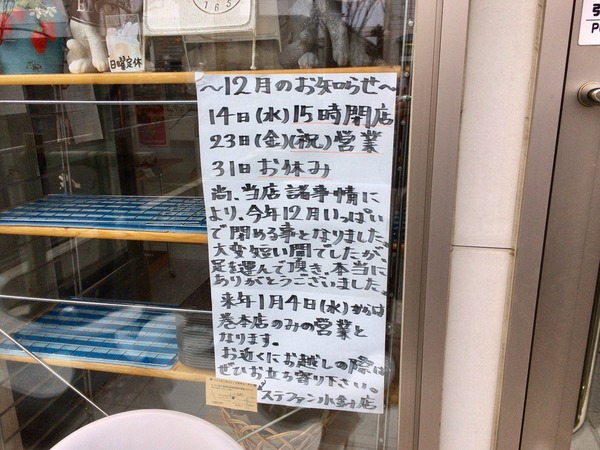 日曜定休
～12月のお知らせ～
14日(水)15時閉店
23日(金)(祝)営業
31日お休み
尚、当店諸事情に
より、今年12月いっぱい
で閉める事となりました。
大変短い間でしたが、
足を運んで頂き、本当に
ありがとうございました。
来年1月4日(水)からは
巻本店のみの営業と
なります。
お近くにお越しの際は
ぜひお立ち寄り下さい。
ステファン小針店
引